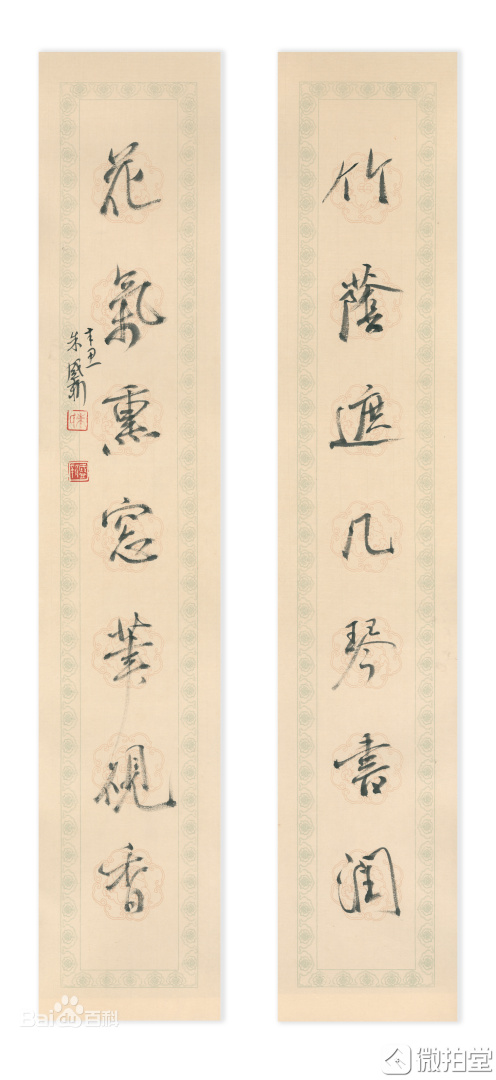 竹蔭遮几琴書潤
花氣熏窓筆硯香
辛丑
朱
Baidu百科
微拍堂